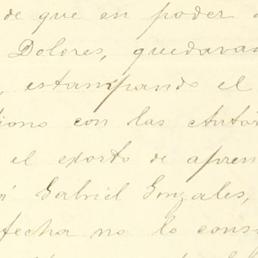 de que en poder
Dolores, quedavan
, estampando el
con las Autor
el exorto de apren
Gabriel Gonzales,
fecha no lo cons